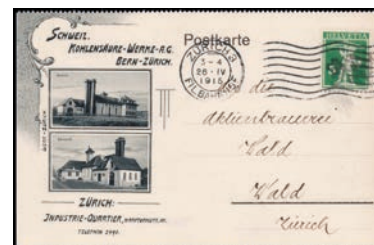 SCHWEIZ.
KOHLENSÄURE-WERKE A.G.
BERN-ZÜRICH.
Postkarte
ZÜRICH 3
3-4
26·IV
1915
HELVETIA
5
An die
Aktienbrauerei
Wald
Wald
Zürich
ZÜRICH:
INDUSTRIE-QUARTIER,
TELEPHON